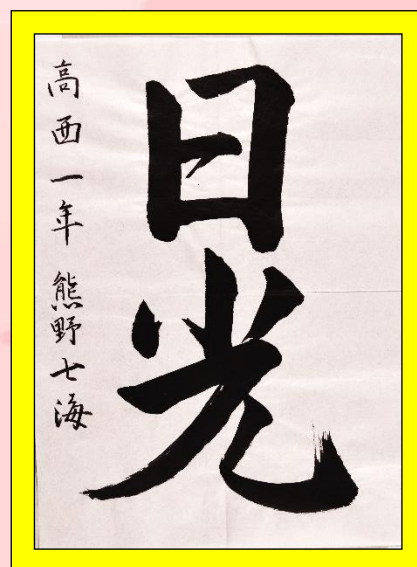 日光
高西一年 熊野七海